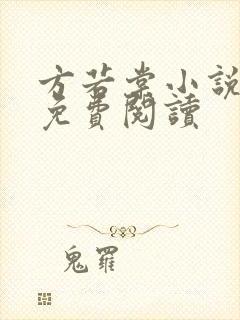 方若棠小說
免費閱讀
鬼羅